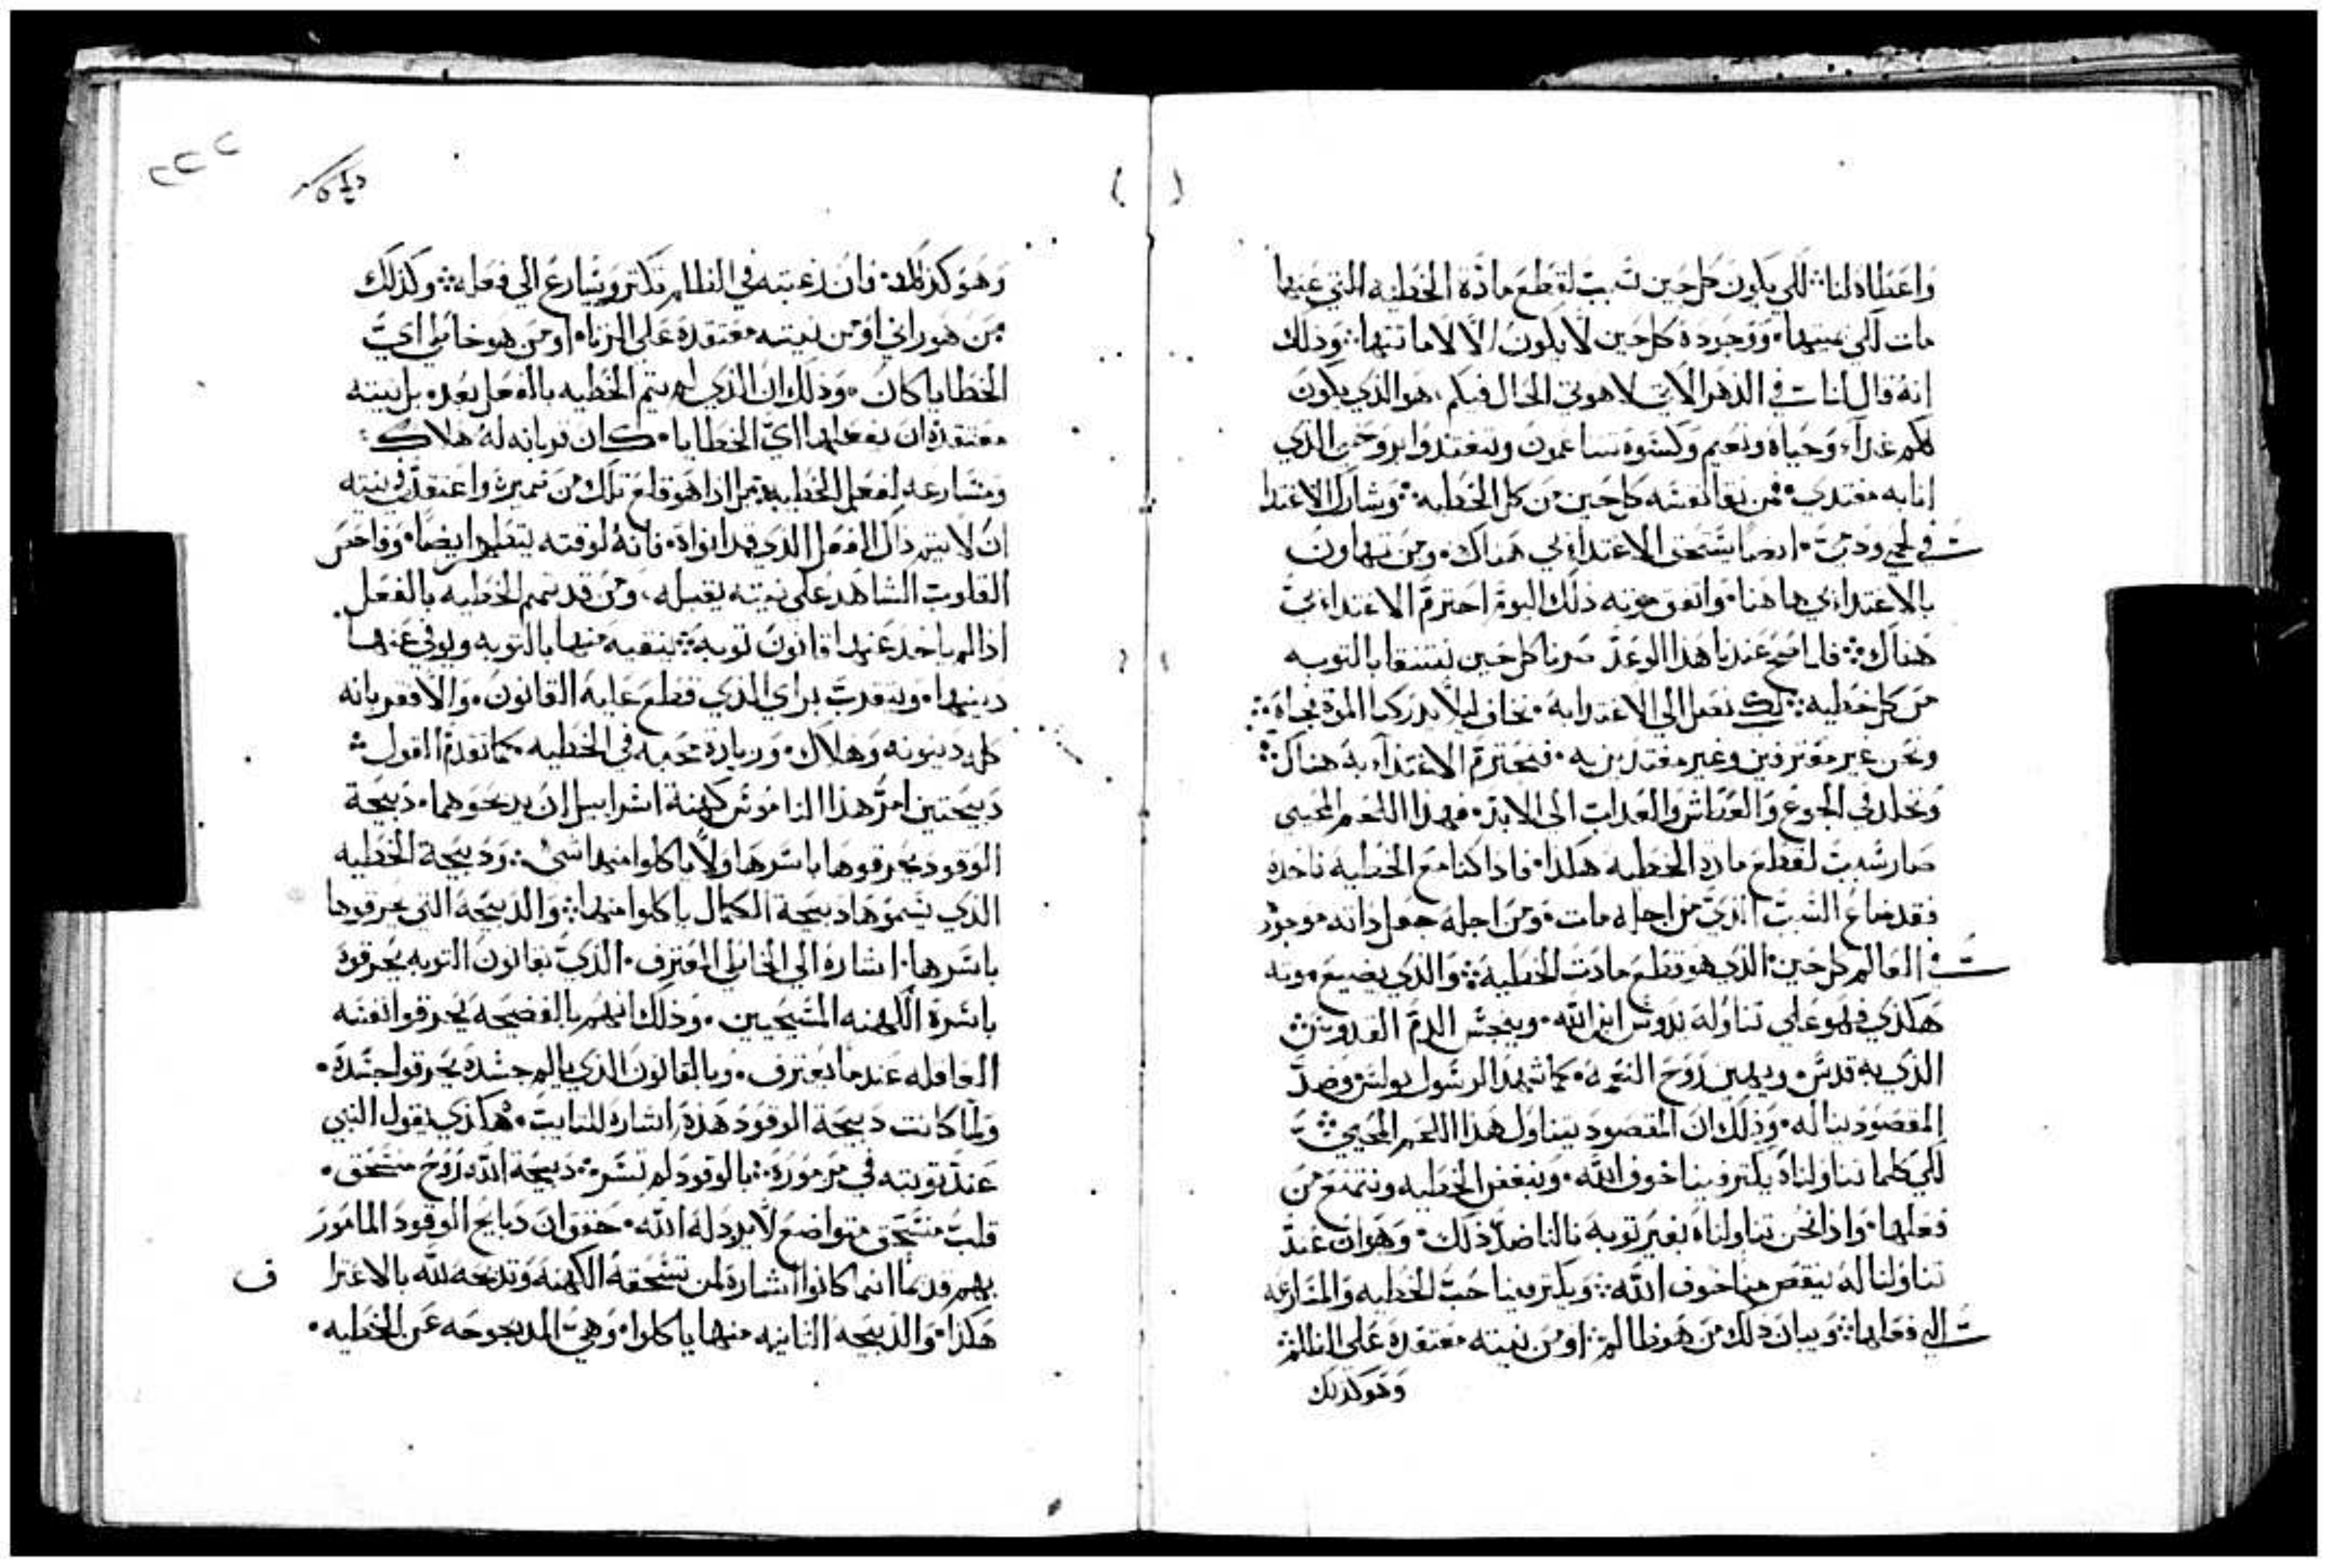 واعطاه لنا لكي يكون كل حين سبب لقطع مادة الخطيه التي عنها
مات لكي يميتها ووجوده كل حين لا يكون الا لاماتتها وذلك
انه قال لنا في الدهر الاتي لاهوتي الحال فيكم هو الذي يكون
لكم غداء وحياه ونعيم وكسوه تساعدون وتغتدوا بروحي الذي
انا به مغتدي فمن نقا نفسه كل حين من كل الخطيه وشارك الاغتدا
في لحمي ودمي ايضا يستحق الاغتداء بي هناك ومن تهاون
بالاغتداء بي هاهنا واتفق موته ذلك اليوم احترم الاغتداء بي
هناك فلما صح عندنا هذا الوعد صرنا كل حين نتنقا بالتوبه
من كل خطيه لكي نصل الي الاغتدا به نخاف ليلا يدركنا الموت بجاه
ونحن غير معترفين وغير مغتديين به فنحترم الاغتداء به هناك
ونخلد في الجوع والعطش والعداب الي الابد فهذا اللحم المحيي
صار سبب لقطع مادة الخطيه هكذا فاذا كنا مع الخطيه ناخده
فقد ضاع السبب الذي من اجله مات ومن اجله جعل ذاته موجود
في العالم كل حين الذي هو قطع مادت الخطيه والذي يضيع موته
هكذي فهو علي تناوله يدوس ابن الله وينجس الدم القدوس
الذي به قدس ويهين روح النعمه كما شهد الرسول بولس وضد
المقصود يناله وذلك ان المقصود بتناول هذا اللحم المحيي
لكي كلما تناولناه يكتر فينا خوف الله ونبغض الخطيه ونتمنع من
فعلها واذا نحن تناولناه بغير توبه نالنا ضد ذلك وهو ان عند
تناولنا له ينقص منا خوف الله ويكتر فينا حب الخطيه والمسارعه
الي فعلها وبيان ذلك من هو ظالم او من نيته معتقده علي الظلم
وهو كذلك
٢٢٢
وهو كذلك فان رغبته في الظلم تكتر ويسارع الي فعله وكذلك
من هو زاني او من نيته معتقده علي الزناه او من هو خاطي اي
الخطايا كان وذلك ان الذي لم يتم الخطيه بالفعل بعد بل نيته
معتقده ان يفعلها اي الخطايا كان قربانه له هلاك
ومسارعه لفعل الخطيه بل اذا هو قلع تلك من ضميره واعتقد في نيته
ان لا يتم ذلك الفعل الذي قد انواه فانه لوقته يتطهر ايضا وفاحص
القلوب الشاهد علي نيته يقبله ومن قد تمم الخطيه بالفعل
اذا لم ياخد عنها قانون توبه ينقيه منها بالتوبه ويوفي عنها
دينها ويتقرب براي الذي قطع عليه القانون والا فقربانه
كله دينونه وهلاك وزيادة محبه في الخطيه كما تقدم القول
دبيحتين امر هذا الناموس كهنة اسراييل ان يدبحوهما دبيحة
الوقود يحرقوها باسرها ولا ياكلوا منها شي ودبيحة الخطيه
الذي يسموها دبيحة الكمال ياكلوا منها والدبيحه التي يحرقوها
باسرها اشاره الي الخاطي المعترف الذي بقانون التوبه يحرقوه
باسره الكهنه المسيحيين وذلك انهم بالفضيحه يحرقوا نفسه
الفاعله عندما يعترف وبالقانون الذي يالم جسده يحرقوا جسده
ولما كانت دبيحة الوقود هذه اشاره للتايب هكذي يقول النبي
عند توبته في مزموره بالوقود لم تسر دبيحة الله روح منسحق
قلب منسحق متواضع لا يردله الله حقق ان دبايح الوقود المامور
بهم قدما انما كانوا اشاره لمن تسحقه الكهنه وتدبحه لله بالاعترا
ف
هكذا والدبيحه التانيه منها ياكلوا وهي المدبوحه عن الخطيه